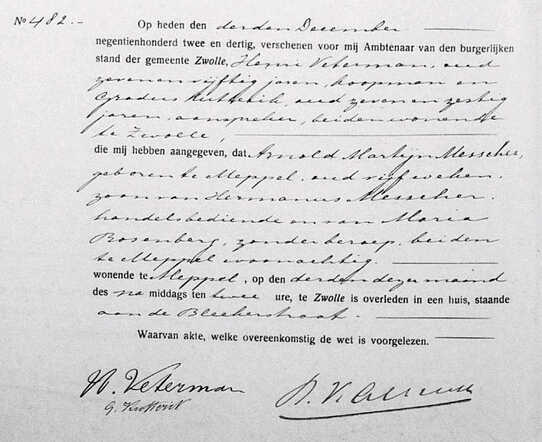 No 482.-
Op heden den derden December
negentienhonderd twee en dertig, verschenen voor mij Ambtenaar van den burgerlijken
stand der gemeente Zwolle, Henri Veterman, oud
zeven en vijftig jaren, koopman en
Gradus oud zeven en zestig
jaren, aanspreker, beiden wonende
te Zwolle,
die mij hebben aangegeven, dat Arnold Martijn Messcher,
geboren te Meppel, oud vijf weken,
zoon van Hermanus Messcher,
handelsbediende en van Maria
Rosenberg, zonder beroep, beiden
te Meppel woonachtig.
wonende te Meppel, op den derden dezer maand
des na middags ten twee ure, te Zwolle is overleden in een huis, staande
aan de Bleekerstraat.
Waarvan akte, welke overeenkomstig de wet is voorgelezen.
H. Veterman
G.